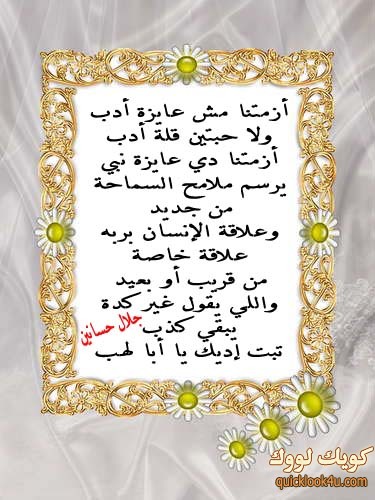 أزمتنا مش عايزة أدب
ولا حبتين قلة أدب
أزمتنا دي عايزة نبي
يرسم ملامح السماحة
من جديد
وعلاقة الإنسان بربه
علاقة خاصة
من قريب أو بعيد
واللي يقول غير كدة
يبقي كذب
جلال حسانين
تبت إديك يا أبا لهب
كويك لووك
quicklook4u.com